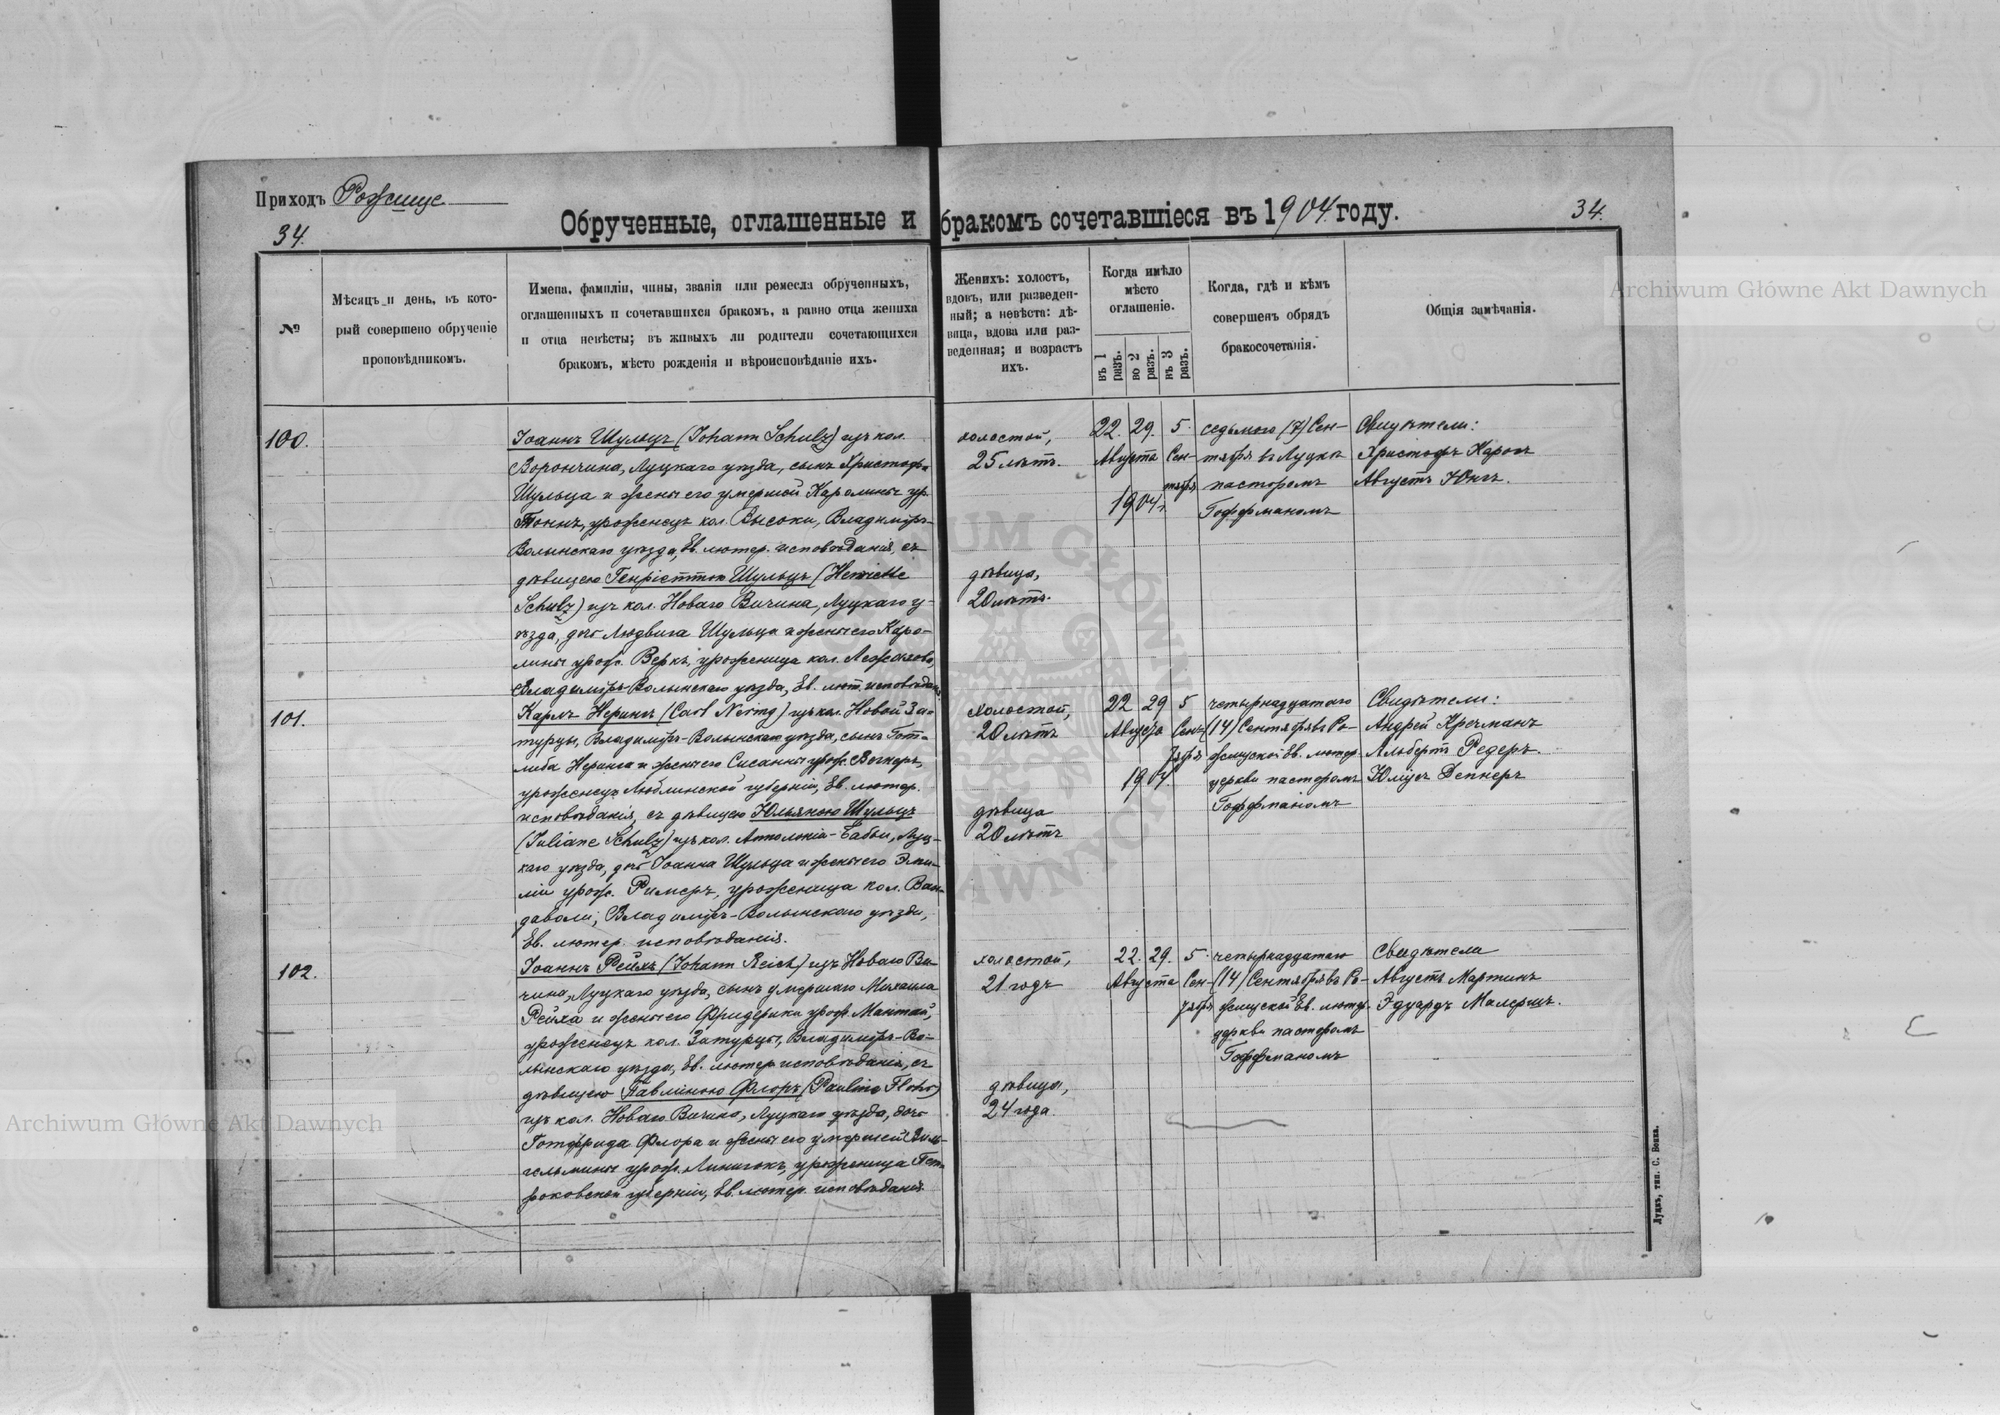 Приходъ Рожище
34.
Обрученные, оглашенные и бракомъ сочетавшіеся въ 1904 году.
34.
№
Мѣсяцъ и день, въ кото-
рый совершено обрученіе
проповѣдникомъ.
Имена, фамиліи, чины, званія или ремесла обрученныхъ,
оглашенныхъ и сочетавшихся бракомъ, а равно отца жениха
и отца невѣсты; въ живыхъ ли родители сочетающихся
бракомъ, мѣсто рожденія и вѣроисповѣданіе ихъ.
Женихъ: холостъ,
вдовъ, или разведен-
ный; а невѣста: дѣ-
вица, вдова или раз-
веденная; и возрастъ
ихъ.
Когда имѣло
мѣсто
оглашеніе.
въ 1 разъ.
во 2 разъ.
въ 3 разъ.
Когда, гдѣ и кѣмъ
совершенъ обрядъ
бракосочетанія.
Общія замѣчанія.
100.
Іоаннъ Шульцъ (Johann Schulz) изъ кол.
Ворончина, Луцкаго уѣзда, сынъ Христофа
Шульца и жены его умершой Каролины ур.
Тоннъ, уроженецъ кол. Высоки, Владиміръ-
Волынскаго уѣзда, Ев. лютер. исповѣданія, съ
дѣвицею Генріэттою Шульцъ (Henriette
Schulz) изъ кол. Новаго Вичина, Луцкаго у-
ѣзда, дочь Людвига Шульца и жены его Каро-
лины урож. Веркъ, уроженица кол.
Владиміръ-Волынскаго уѣзда, Ев. лют. исповѣданія
холостой,
25 лѣтъ.
дѣвица,
20 лѣтъ.
22. 29. 5.
Августа Сен-
тября
1904 г.
седьмого (7) Сен-
тября въ Луцкѣ
пасторомъ
Гоффманомъ
Свидѣтели:
Христофъ Кароль
Августъ Юнгъ.
101.
Карлъ Нерингъ (Carl Nering) изъ кол. Новой За-
турцы, Владиміръ-Волынскаго уѣзда, сынъ Гот-
либа Неринга и жены его Сусанны урож. Вегнеръ,
уроженецъ Люблинской губерніи, Ев. лютер.
исповѣданія, съ дѣвицею Юльяною Шульцъ
(Juliane Schulz) изъ кол. Аполонія-Бабьи, Луц-
каго уѣзда, дочь Іоанна Шульца и жены его Эми-
ліи урож. Римеръ, уроженица кол. Ван-
даволи, Владиміръ-Волынскаго уѣзда,
Ев. лютер. исповѣданія.
холостой,
20 лѣтъ
дѣвица
20 лѣтъ
22 29 5
Августа Сен-
тября
1904.
четырнадцатаго
(14) Сентября въ Ро-
жищской Ев. лютер.
церкви пасторомъ
Гоффманомъ
Свидѣтели:
Андрей Кречманъ
Альбертъ Редеръ.
Юліусъ Депнеръ
102.
Іоаннъ Рейхъ (Johann Reich) изъ Новаго Ви-
чина, Луцкаго уѣзда, сынъ умершаго Михаила
Рейха и жены его Фридерики урож. Мантай,
уроженецъ кол. Затурцы, Владиміръ-Во-
лынскаго уѣзда, Ев. лютер. исповѣданія, съ
дѣвицею Павлиною Флоръ (Pauline Flohr)
изъ кол. Новаго Вичина, Луцкаго уѣзда, дочь
Готфрида Флора и жены его умершей Виль-
гельмины урож. уроженица Пет-
роковской губерніи, Ев. лютер. исповѣданія
холостой,
21 годъ
дѣвица,
24 года.
22. 29. 5.
Августа Сен-
тября
четырнадцатаго
(14) Сентября въ Ро-
жищской Ев. лютер.
церкви пасторомъ
Гоффманомъ
Свидѣтели
Августъ Мартинъ
Эдуардъ Малершъ.
Луцкъ, тип. С. Бонка.
Archiwum Główne Akt Dawnych
Archiwum Główne Akt Dawnych